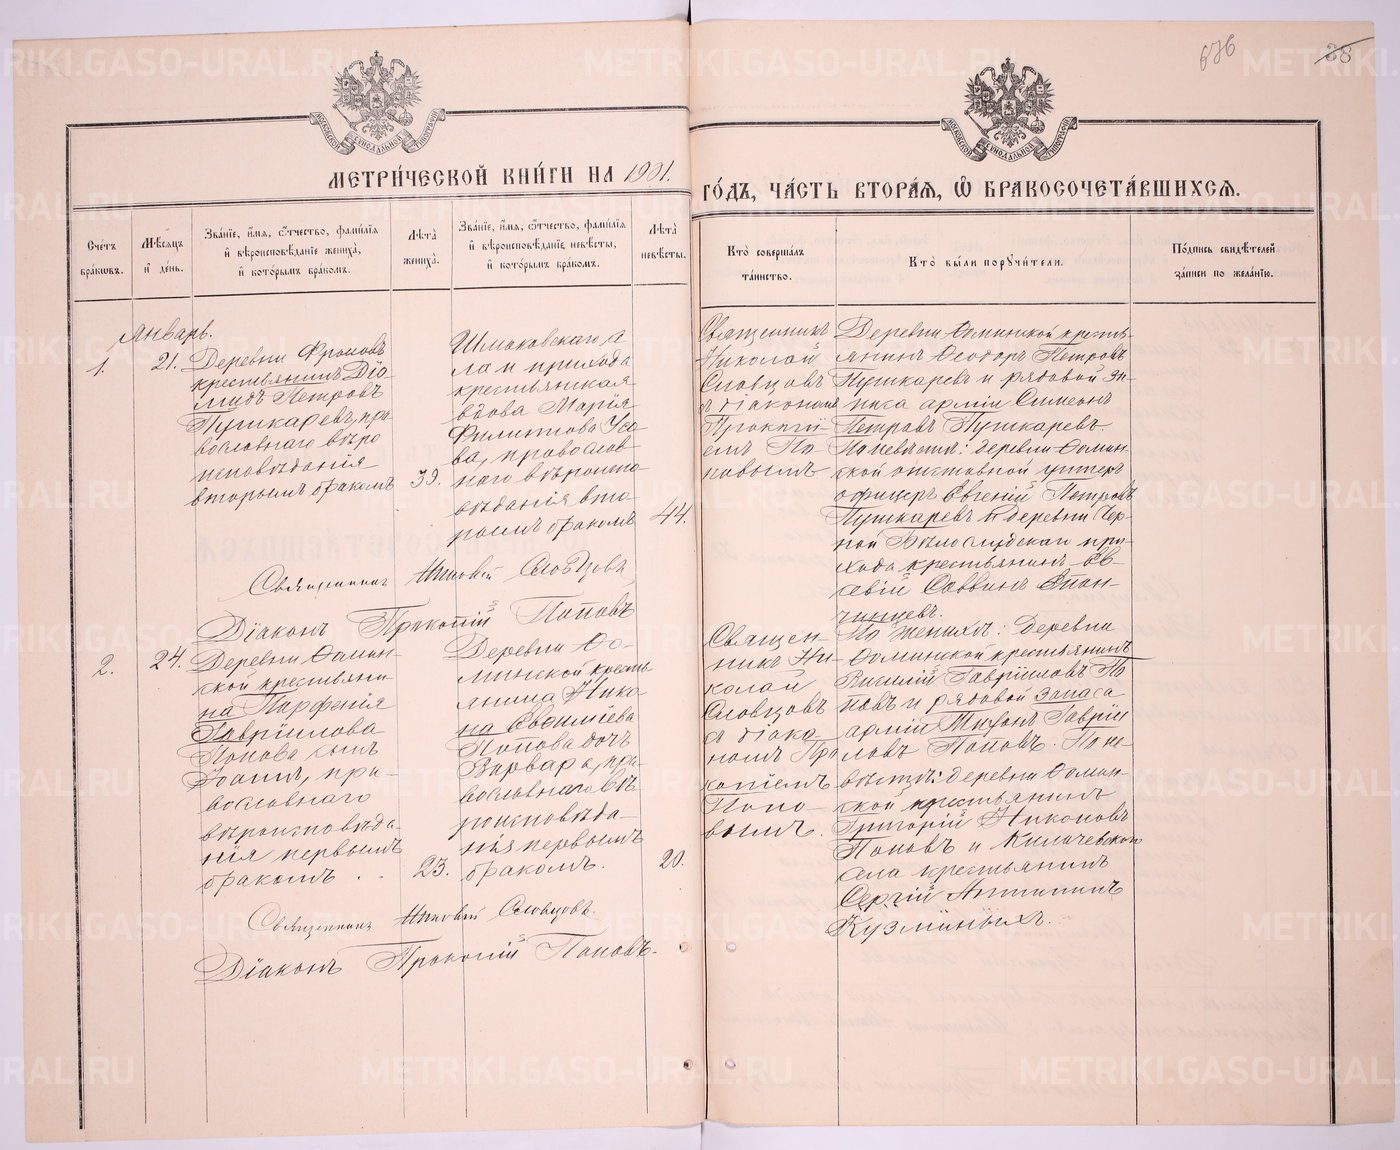 676
38
МЕТРИ́ЧЕСКОЙ КНИ́ГИ НА 1901.
ГО́ДЪ, ЧА́СТЬ ВТОРА́Я, Ѿ БРАКОСОЧЕТА́ВШИХСЯ.
Сче́тъ бра́ковъ.
Мѣ́сяцъ и де́нь.
Зва́нїе, и́мя, ѻ́тчество, фами́лїя и вѣроисповѣ́данїе жениха̀, и кото́рымъ бра́комъ.
Лѣ́та жениха̀.
Зва́нїе, и́мя, ѻ́тчество, фами́лїя и вѣроисповѣ́данїе невѣ́сты, и кото́рымъ бра́комъ.
Лѣ́та невѣ́сты.
Кто̀ соверша́лъ та́инство.
Кто̀ бы́ли порꙋчи́тели.
По́дпись свидѣ́телей за́писи по жела́нїю.
Январь.
1.
21.
Деревни
крестьянинъ Діа-
мидъ Петровъ
Пушкаревъ, пра-
вославнаго вѣро
исповѣданія
вторымъ бракомъ
39.
Шмаковскаго, с
ла и прихода
крестьянская
вдова Марія
Филиппова Уса-
ва, православ-
наго вѣроиспо-
вѣданія вто-
рымъ бракомъ
44.
Священникъ
Николай
Словцовъ
съ діакономъ
Прокопі-
емъ По-
повымъ
Деревни Ѳоминской кресть-
янинъ Ѳеодоръ Петровъ
Пушкаревъ и рядовой за-
паса арміи Симеонъ
Петровъ Пушкаревъ.
По невѣстѣ: деревни Ѳомин-
ской отставной унтеръ
офицеръ Евгеній Петровъ
Пушкаревъ и деревни Чер-
ной Бѣлослудскаго при-
хода крестьянинъ Ев-
севій Саввинъ
Священникъ Николай Словцовъ
Діаконъ Прокопій Поповъ
2.
24.
Деревни Ѳомин-
ской крестьяни-
на Парѳенія
Гавріилова
Попова сынъ
Іоаннъ, пра-
вославнаго
вѣроисповѣда-
нія первымъ
бракомъ
23.
Деревни Ѳо-
минской кресть
янина Нико-
на
Попова дочь
Варвара, пра-
вославнаго вѣ-
роисповѣда-
нія первымъ
бракомъ.
20.
Священ-
никъ Ни-
колай
Словцовъ
съ діако-
номъ Про
копіемъ
Попо-
вымъ.
По женихѣ: деревни
Ѳоминской крестьянинъ
Василій Гавріиловъ По-
повъ и рядовой запаса
арміи Тихонъ Гаврiи
ловъ Поповъ. По не-
вѣстѣ: деревни Ѳомин-
ской крестьянинъ
Григорій Никоновъ
Поповъ и Килачевскаго
села крестьянинъ
Сергій Антипинъ
Кузминыхъ.
Священникъ Николай Словцовъ.
Діаконъ Прокопій Поповъ.
METRIKI.GASO-URAL.RU